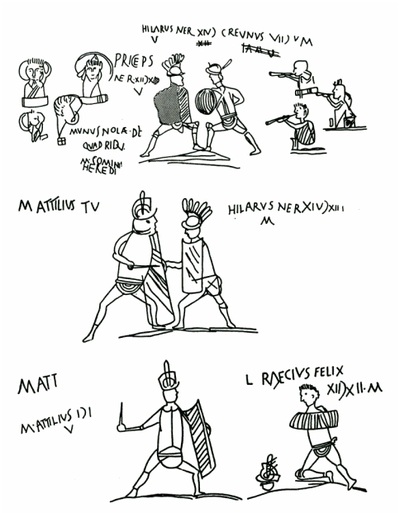 HILARUS NER XIV) CREUNUS VII) V M
V
PRICEPS
NER XII)X)
V
MUNUS NOLÆ·DE
QUADRIDU
M·COMINI
HEREDI
M ATTILIUS TV
HILARUS NER XIV) XIII
M
MATT
M·ATTILIUS I)I
V
L RAECIUS FELIX
XII)XII·M